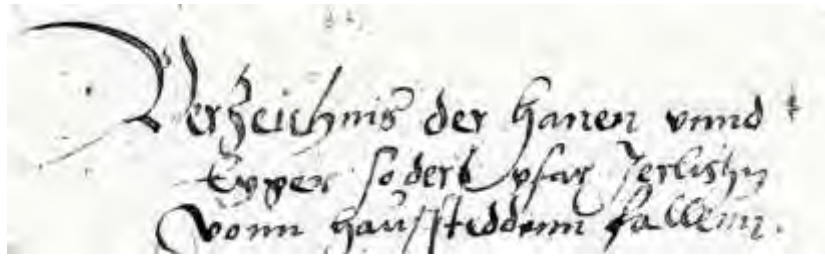 Verzeichnis der Hanen vnnd
Eyger so der pfar Jerlichn
vonn haussteddenn fallenn.